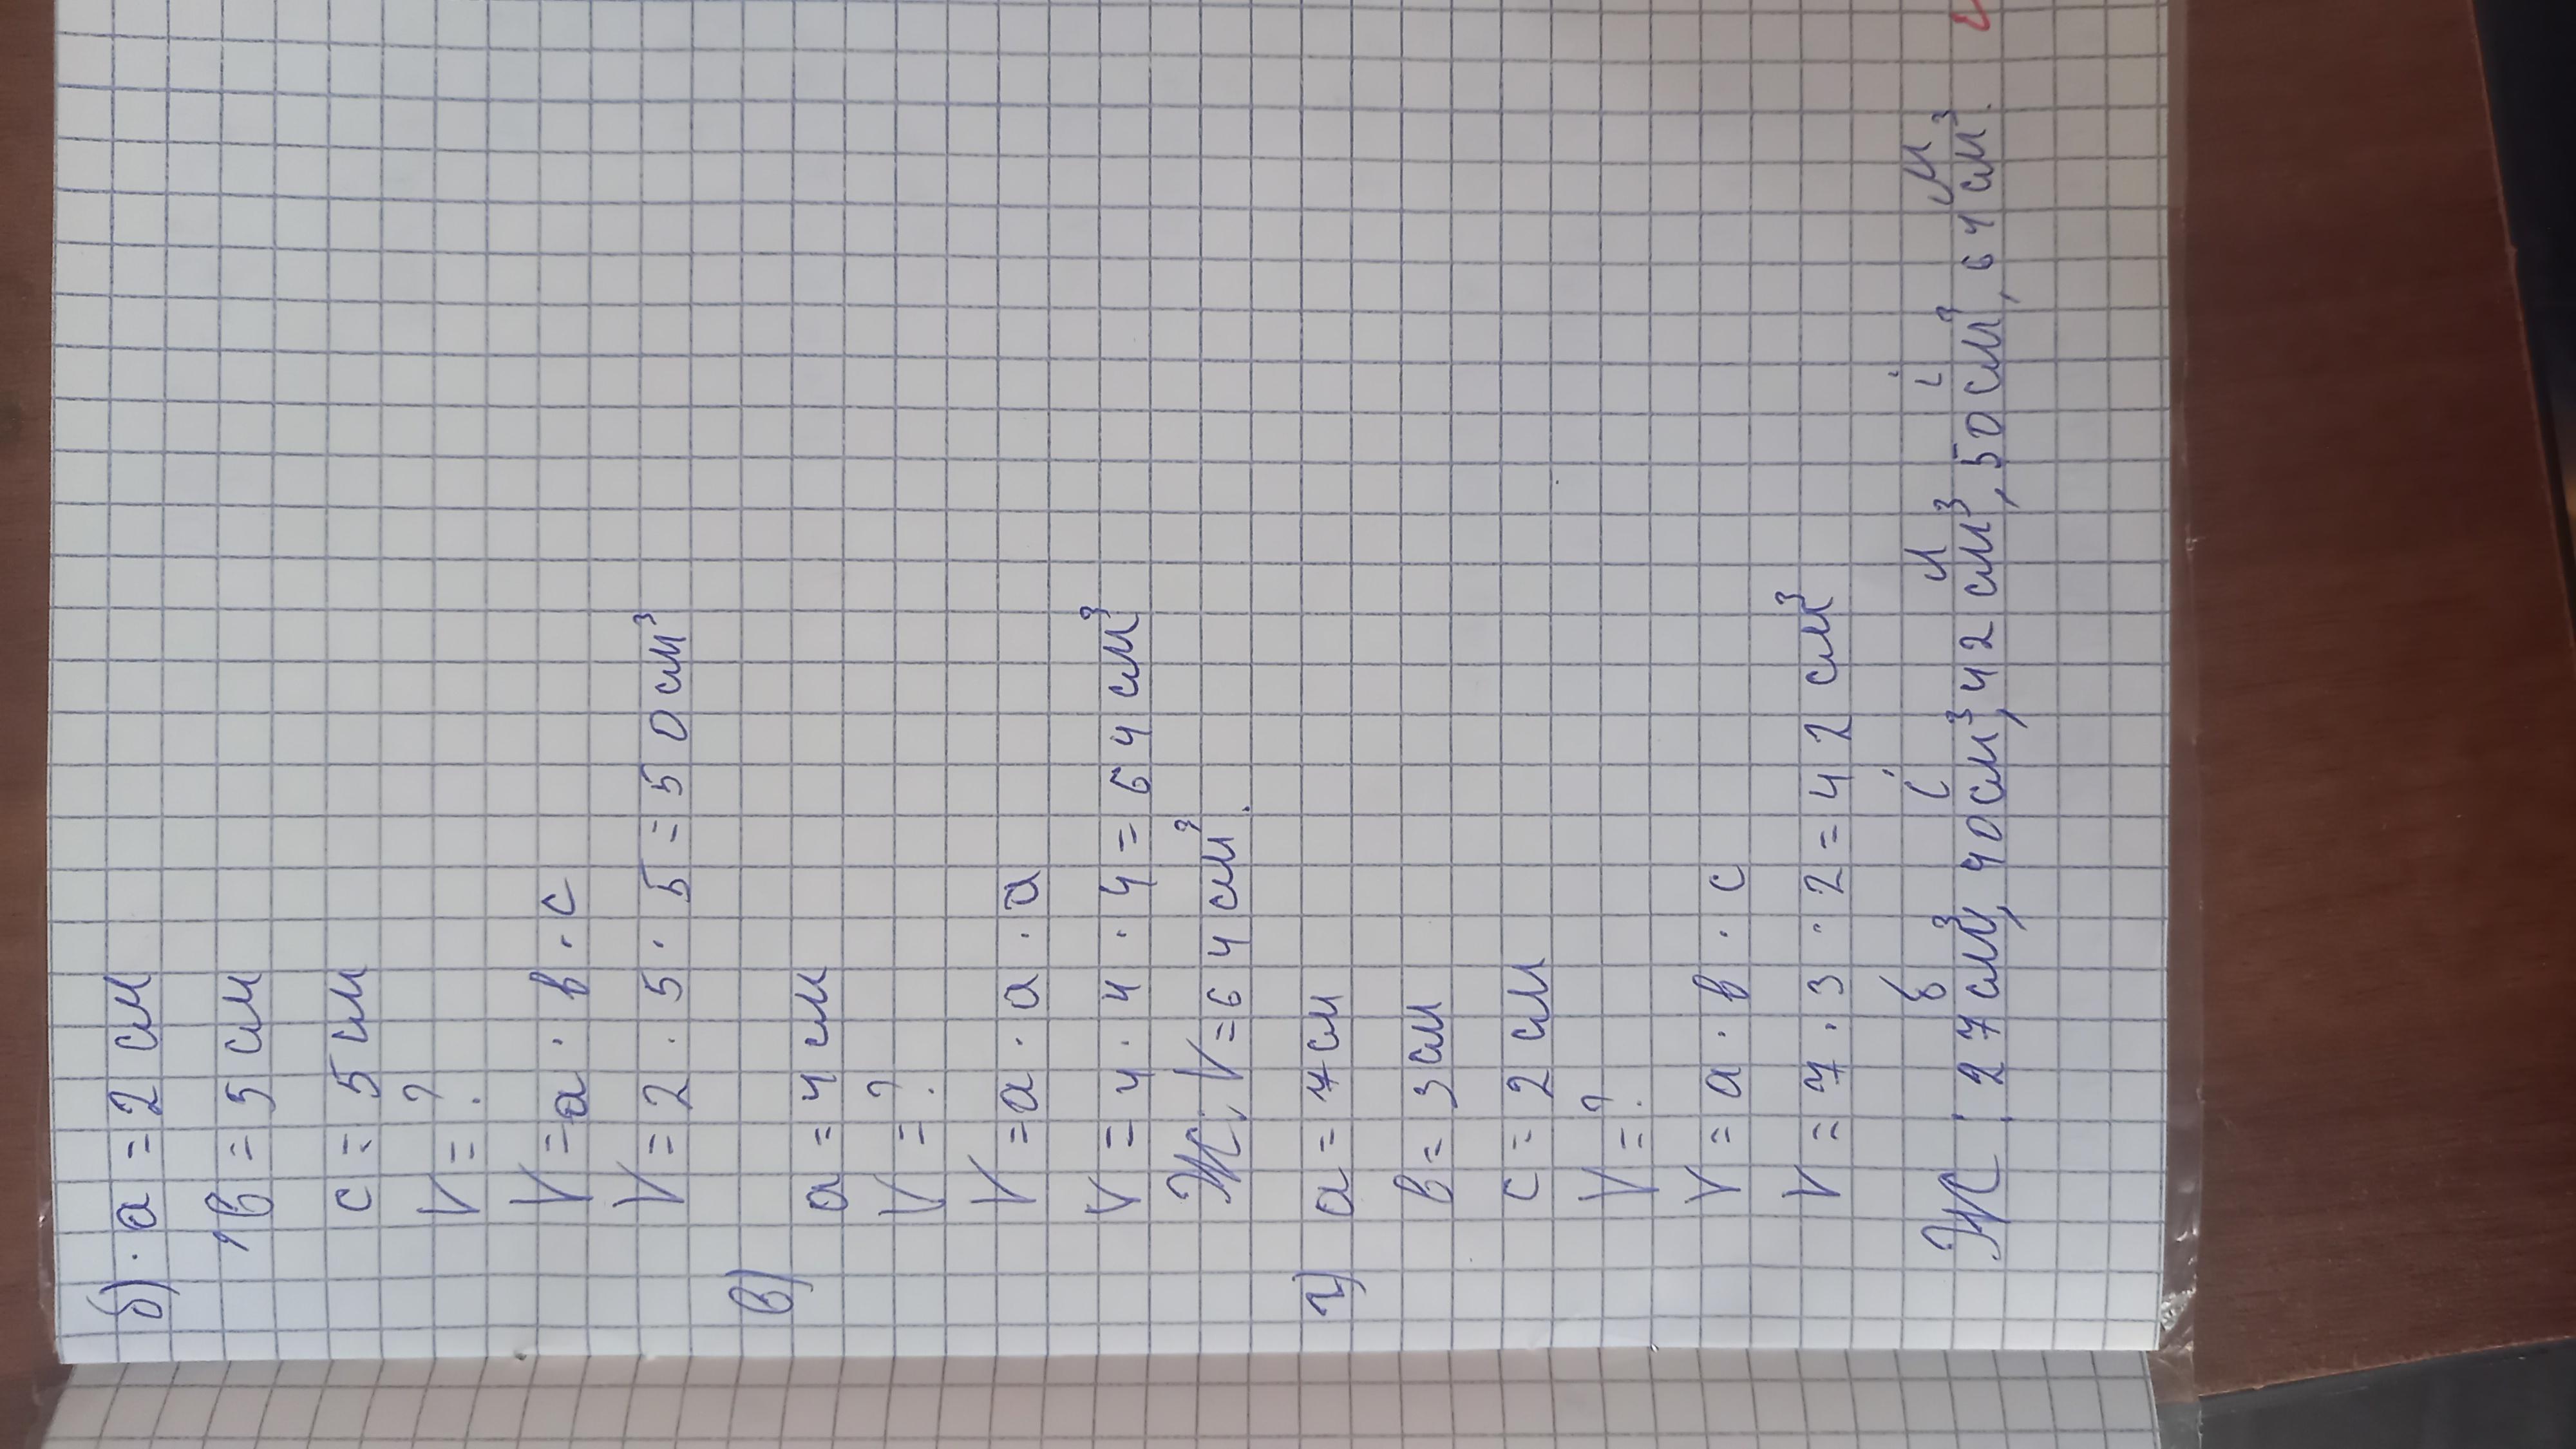 б) · a = 2 см
в = 5 см
c = 5 см
V = ?
V = a · в · c
V = 2 · 5 · 5 = 50 см³
в)
a = 4 см
V = ?
V = a · a · a
V = 4 · 4 · 4 = 64 см³
Ж: V = 64 см³.
г) a = 7 см
в = 3 см
c = 2 см
V = ?
V = a · в · c
V = 7 · 3 · 2 = 42 см³
б і и і м
Ж: 27 см³, 40 см³, 42 см³, 50 см³, 64 см³.